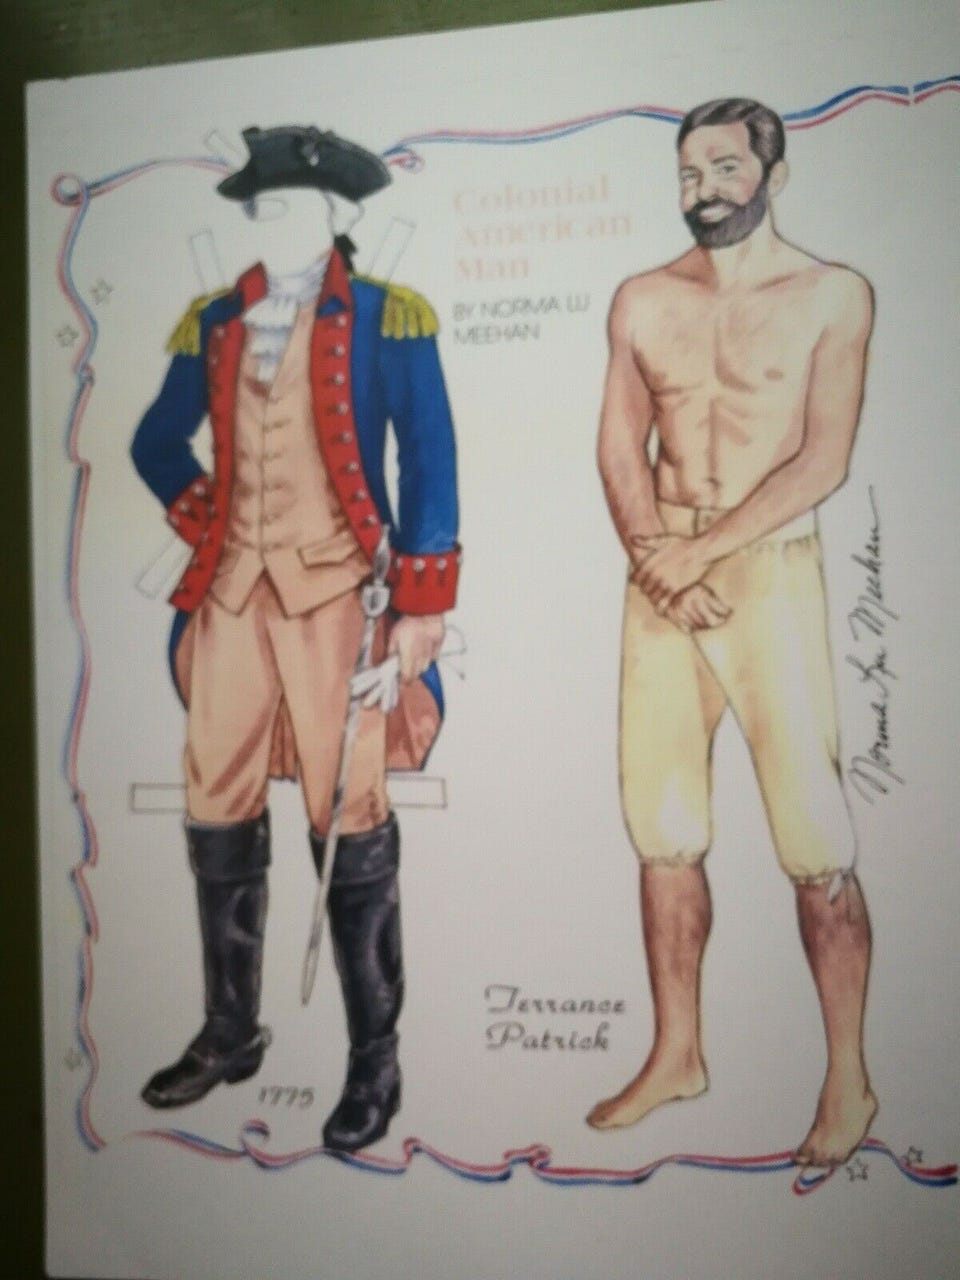 Colonial
American
Man
BY NORMA LU
MEEHAN
Norma Lu Meehan
Terrance
Patrick
1775